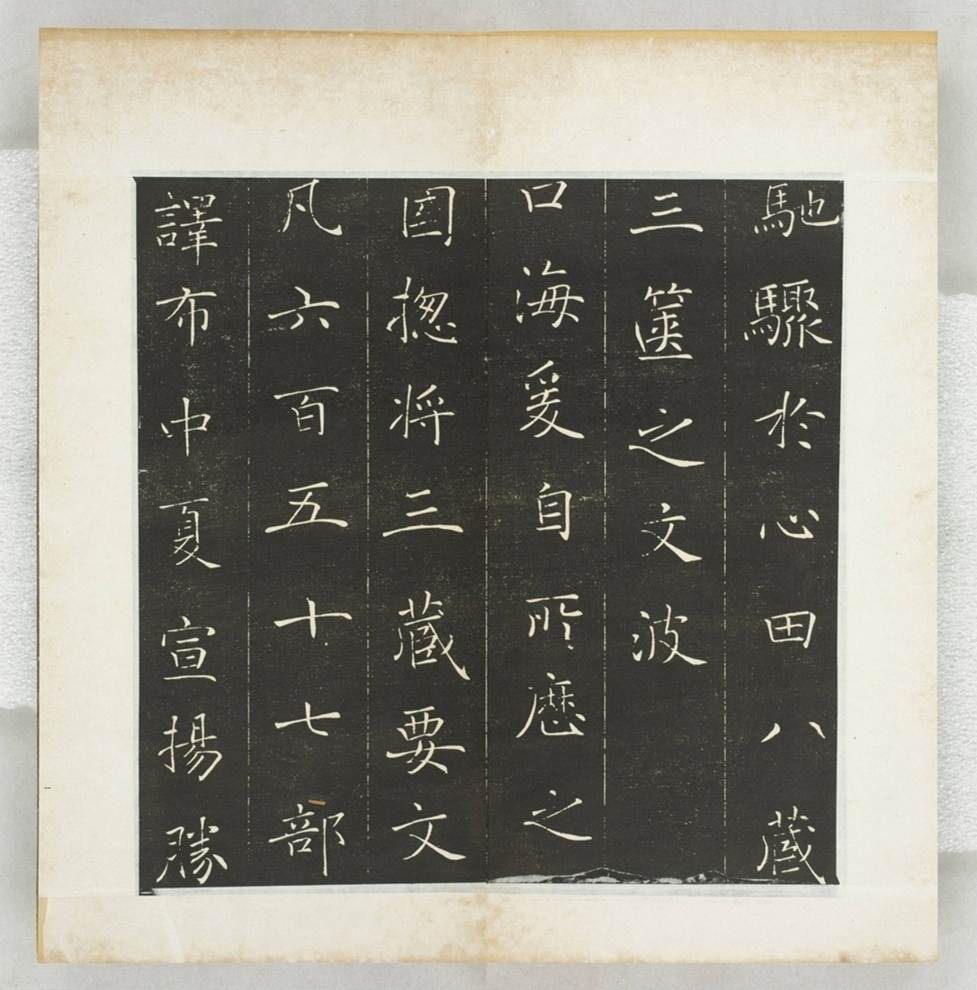 馳驟於心田八藏
三篋之文波
口海爰自所歷之
國揔将三藏要文
凡六百五十七部
譯布中夏宣揚勝